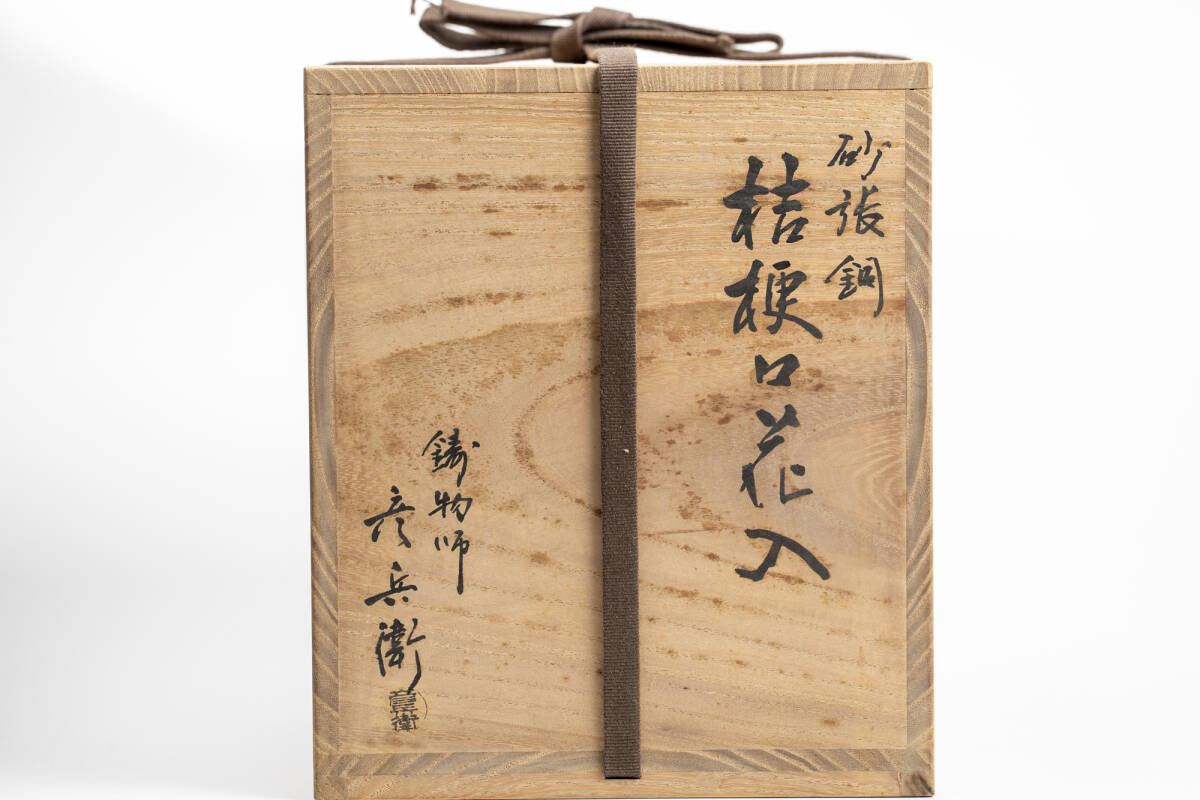 砂張銅
桔梗口花入
鋳物師
彦兵衛